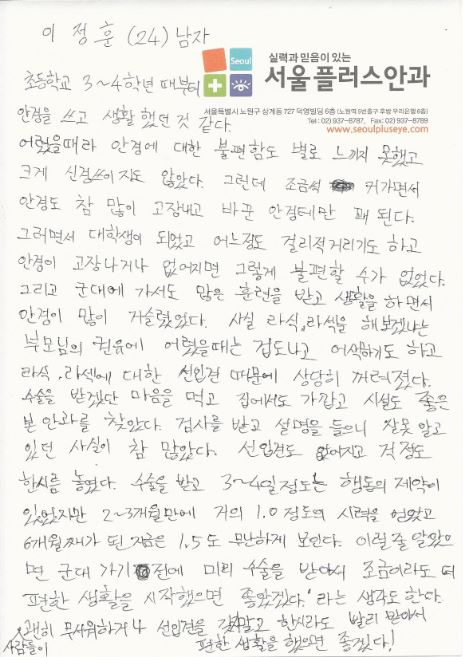 이 정훈 (24) 남자
Seoul
실력과 믿음이 있는
서울플러스안과
서울특별시 노원구 상계동 727 덕영빌딩 6층 (노원역 5번출구 후방 우리은행 6층)
Tel: 02) 937-8787, Fax: 02) 937-8789
www.seoulpluseye.com
초등학교 3~4학년 때부터
안경을 쓰고 생활 했던 것 같다.
어렸을때라 안경에 대한 불편함도 별로 느끼지 못했고
크게 신경쓰이지도 않았다. 그런데 조금씩 커가면서
안경도 참 많이 고장내고 바꾼 안경테만 꽤 된다.
그러면서 대학생이 되었고 어느정도 걸리적거리기도 하고
안경이 고장나거나 없어지면 그렇게 불편할 수가 없었다.
그리고 군대에 가서도 많은 훈련을 받고 생활을 하면서
안경이 많이 거슬렸었다. 사실 라식, 라섹을 해보겠냐는
부모님의 권유에 어렸을때는 겁도나고 어색하기도 하고
라식, 라섹에 대한 선입견 때문에 상당히 꺼려졌다.
수술을 받겠다 마음을 먹고 집에서도 가깝고 시설도 좋은
본 안과를 찾았다. 검사를 받고 설명을 들으니 잘못 알고
있던 사실이 참 많았다. 선입견도 없어지고 걱정도
한시름 놓였다. 수술을 받고 3~4일정도는 행동의 제약이
있었지만 2~3개월만에 거의 1.0 정도의 시력을 얻었고
6개월째가 된 지금은 1.5도 무난하게 보인다. 이럴줄 알았으
면 군대 가기 전에 미리 수술을 받아서 조금이라도 더
편한 생활을 시작했으면 좋았겠다.' 라는 생각도 한다.
사람들이 괜히 무서워하거나 선입견을 갖지말고 한시라도 빨리 받아서
편한 생활을 했으면 좋겠다!